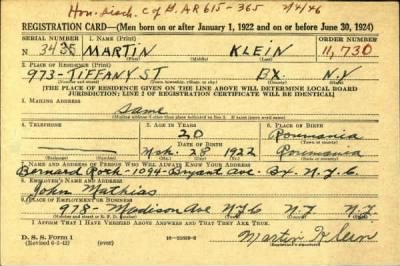 Hon. disch. C of D. AR 615-365 7/4/46
REGISTRATION CARD—(Men born on or after January 1, 1922 and on or before June 30, 1924)
SERIAL NUMBER 1. NAME (Print) ORDER NUMBER
N 3435 MARTIN KLEIN 11,730
(First) (Middle) (Last)
2. PLACE OF RESIDENCE (Print)
973-TIFFANY ST BX. N.Y
(Number and street) (Town, township, village, or city) (County) (State)
[THE PLACE OF RESIDENCE GIVEN ON THE LINE ABOVE WILL DETERMINE LOCAL BOARD
JURISDICTION; LINE 2 OF REGISTRATION CERTIFICATE WILL BE IDENTICAL]
3. MAILING ADDRESS
Same
[Mailing address if other than place indicated on line 2. If same insert word same]
4. TELEPHONE 5. AGE IN YEARS 6. PLACE OF BIRTH
20 Roumania
DATE OF BIRTH
28 1922 Roumania
(Exchange) (Number) (Mo.) (Day) (Yr.)
7. NAME AND ADDRESS OF PERSON WHO WILL ALWAYS KNOW YOUR ADDRESS
Bernard Roth-1094-Bryant Ave-Bx. N.Y.C
8. EMPLOYER'S NAME AND ADDRESS
John Mathias
9. PLACE OF EMPLOYMENT OR BUSINESS
978-Madison Ave N.Y.C N.Y N.Y
(Number and street or R. F. D. number) (Town) (County) (State)
I AFFIRM THAT I HAVE VERIFIED ABOVE ANSWERS AND THAT THEY ARE TRUE.
D. S. S. Form 1
(Revised 6-9-42) (over)
Martin Klein